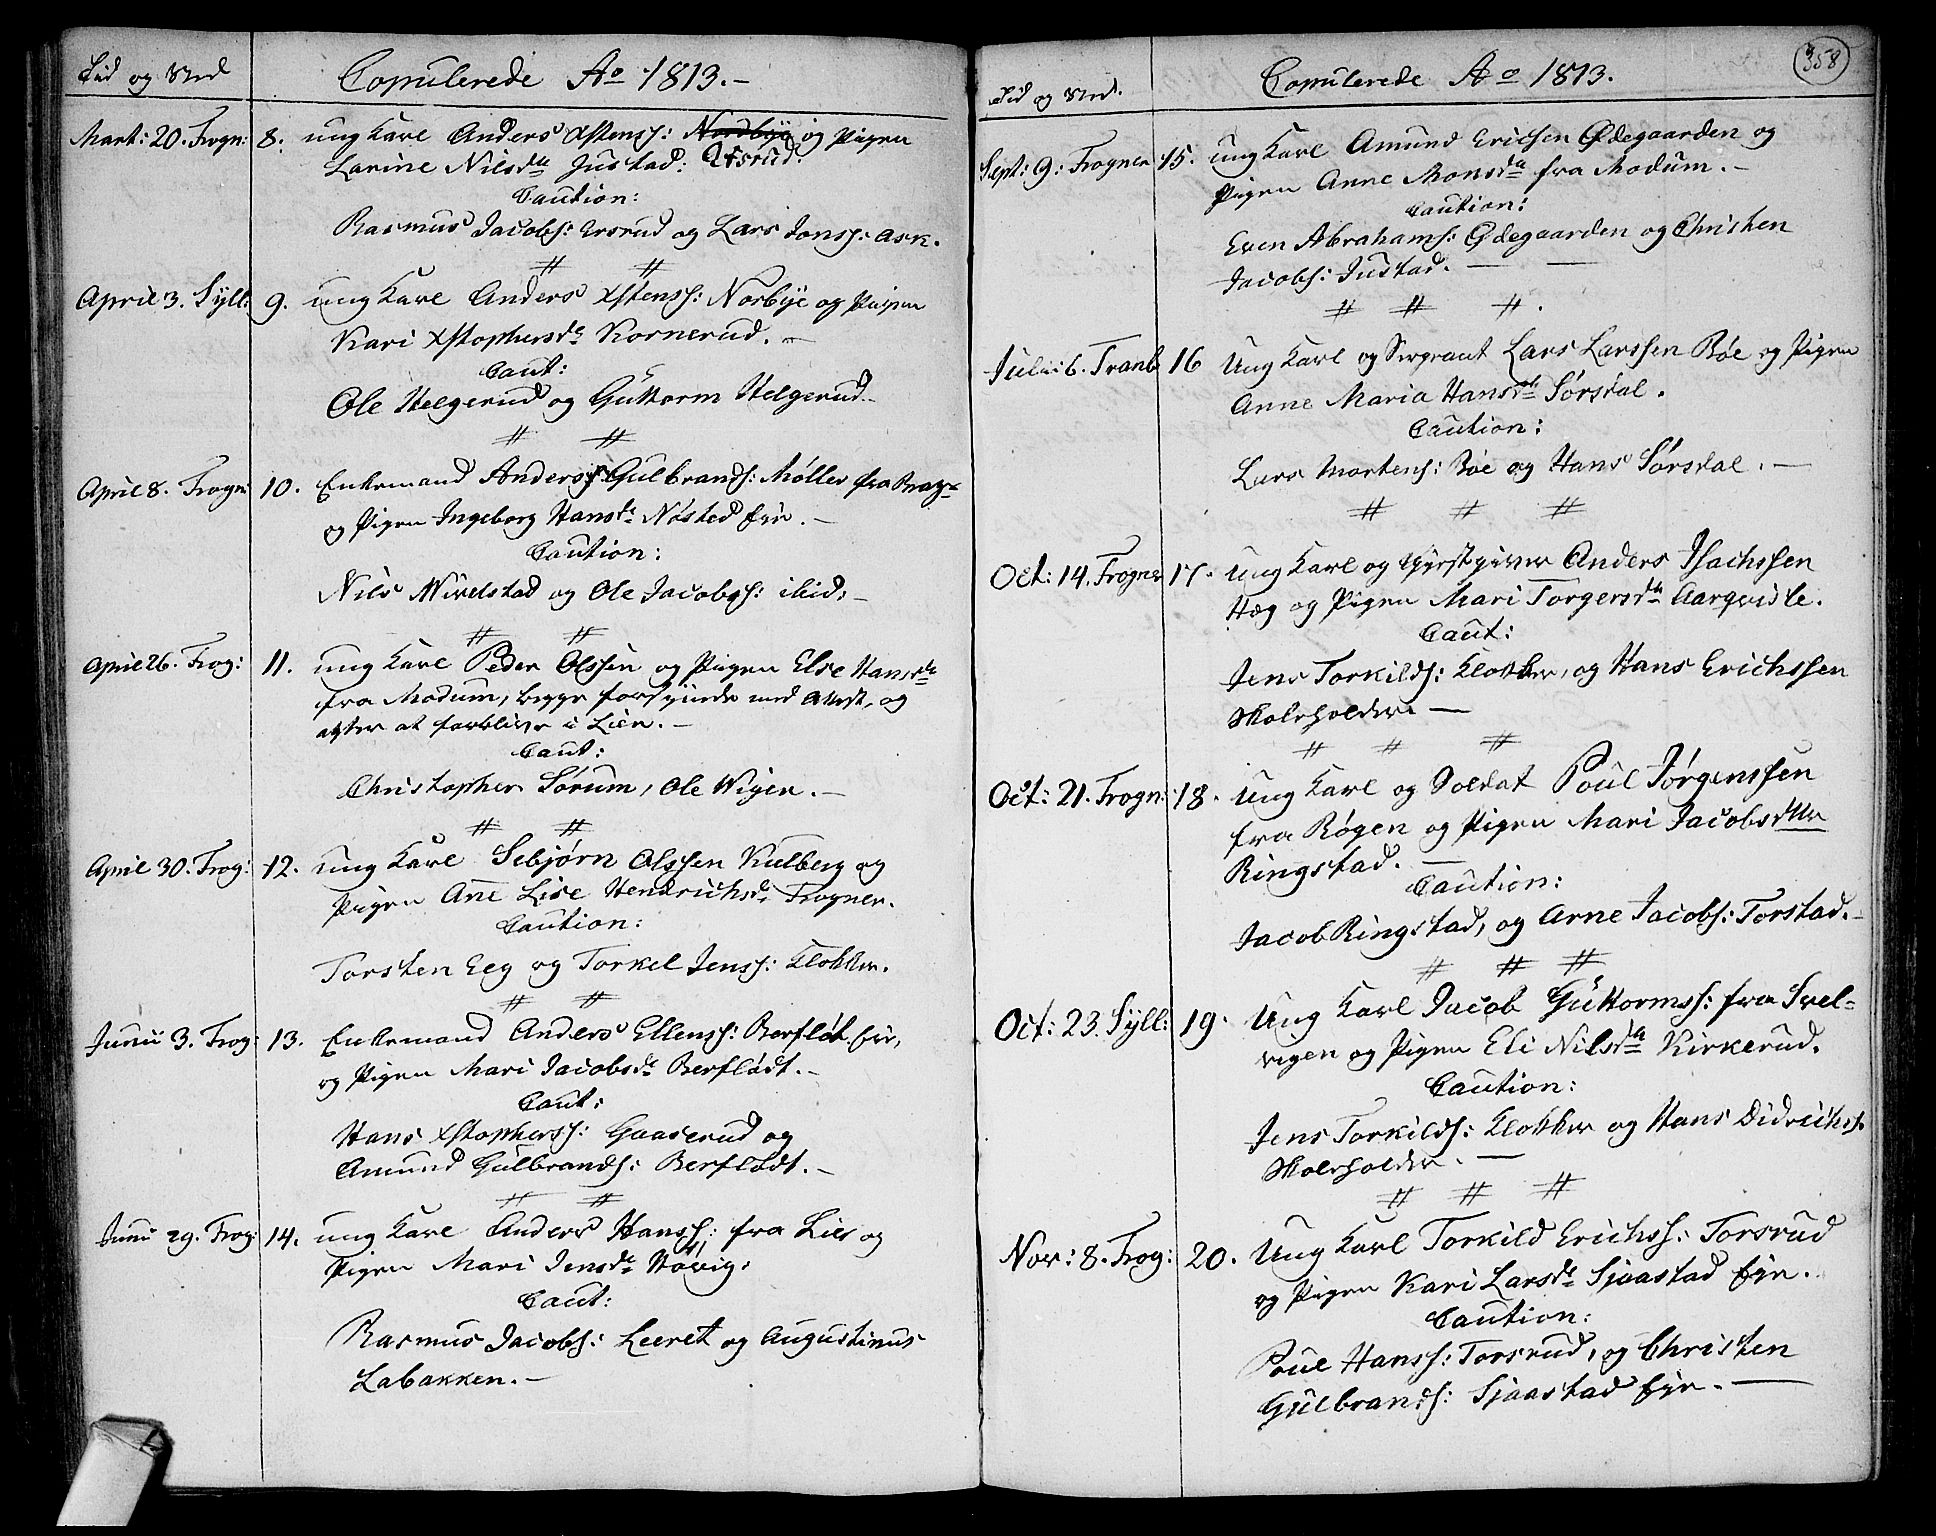 Tid og Sted
Copulerede Ao 1813.-
Mart: 20. Frogn: 8. ung Karl Anders Xstenss: Nordbye og Pigen
Larine Nilsdr Justad: Ursrud.
Caution:
Rasmus Jacobs: Ersrud og Lars Jonss: Ask.
# #
April 3. Syll: 9. ung Karl Anders Xstenss: Norbye og Pigen
Kari Xstophersdr Kornerud. -
Caut:
Ole Helgerud og Guttorm Helgerud.
# #
April 8. Frogn: 10. Enkemand Anders Gulbrands: Møller fra Brag:
og Pigen Ingeborg Hansdr Nøsted Eje. -
Caution:
Nils Wivelstad og Ole Jacobs: ibid: -
# #
April 26. Frog: 11. ung Karl Peder Olssen og Pigen Else Hansdr
fra Modum, begge forsynede med Attest, og
agter at forblive i Lier. -
Caut:
Christopher Sørum, Ole Wigen. -
# #
April 30. Frog: 12. ung Karl Sebjørn Olssen Kulberg og
Pigen Ane Lise Hendrichsdr Frogner.
Caution:
Torsten Eeg og Torkel Jenss: Klokker.
# #
Junii 3. Frog: 13. Enkemand Anders Ellenss: Berfløt Eje,
og Pigen Mari Jacobsdr Berflødt. -
Caut:
Hans Xstopherss: Gaaserud og
Amund Gulbrands: Berflødt. -
# #
Junii 29. Frog: 14. ung Karl Anders Hanss: fra Lier og
Pigen Mari Jensdr Høvig:
Caut:
Rasmus Jacobs: Leeret og Augustinus
Labakken. -
358
Tid og Sted.
Copulerede Ao 1813.
Sept: 9: Frogner 15. ung Karl Amund Ericsen Ødegaarden og
Pigen Anne Monsdr fra Modum. -
Caution:
Even Abrahams: Ødegaarden og Christen
Jacobs: Justad. -
# # #.
Julii 6. Tranb 16 Ung Karl og Sergeant Lars Larssen Bøe og Pigen
Anne Maria Hansdr Sørsdal.
Caution:
Lars Mortens: Bøe og Hans Sørsdal. -
# # #
Oct: 14. Frogner 17. Ung Karl og Anders Isachssen
Hæg og Pigen Mari Torgersdr Aarqvisle.
Caut:
Jens Torkilds: Klokker, og Hans Erichssen
Skoleholder. -
# # #
Oct: 21. Frogn: 18. Ung Karl og Soldat Poul Jørgenssen
fra Røgen og Pigen Mari Jacobsdtter
Ringstad. -
Caution:
Jacob Ringstad, og Arne Jacobs: Torstad. -
# # #
Oct: 23. Syll: 19. Ung Karl Jacob Guttormss: fra Svel-
vigen og Pigen Eli Nilsdr Kirkerud.
Caution:
Jens Torkilds: Klokker og Hans Didrichs:
Skoleholder. -
# # #
Nov: 8. Frog: 20. Ung Karl Torkild Erichss: Torsrud
og Pigen Kari Larsdr Sjaastad Eje.
Caution:
Poul Hanss: Torsrud, og Christen
Gulbrands: Sjaastad Eje. -